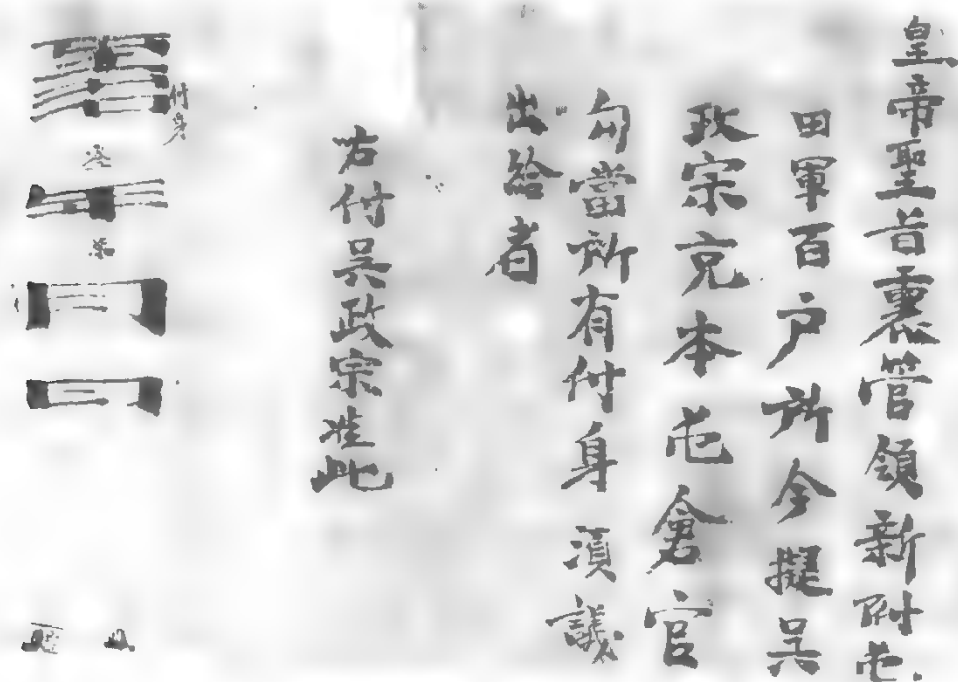 皇帝聖旨裏管領新附屯
田軍百户所今擬吴
政宗充本屯倉官
勾當所有付身須議
出給者
右付吴政宗准此
付身